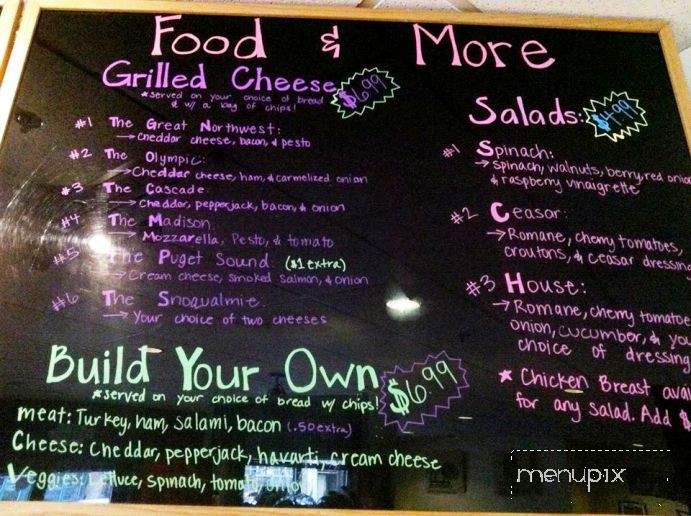 Food & More
Grilled Cheese $6.99
*served on your choice of bread
& w/ a bag of chips!
#1 The Great Northwest:
→ cheddar cheese, bacon, & pesto
#2 The Olympic:
→ Cheddar cheese, ham, & carmelized onion
#3 The Cascade:
→ Cheddar, pepperjack, bacon, & onion
#4 The Madison
→ Mozzarella, Pesto, & tomato
#5 The Puget Sound ($1 extra)
→ Cream cheese, smoked salmon, & onion
#6 The Snoqualmie.
→ Your choice of two cheeses
Build Your Own $6.99
*served on your choice of bread w/ chips!
meat: Turkey, ham, salami, bacon (.50 extra)
Cheese: Cheddar, pepperjack, havarti, cream cheese
Veggies: Lettuce, spinach, tomato, onion
Salads: $4.99
#1 Spinach:
→ Spinach, walnuts, berry, red onion
& raspberry vinaigrette
#2 Ceasor:
→ Romane, cherry tomatoes,
croutons, & ceasar dressing
#3 House:
→ Romane, cherry tomatoe
onion, cucumber, & you
choice of dressing
* Chicken Breast avai
for any salad. Add $
menupix